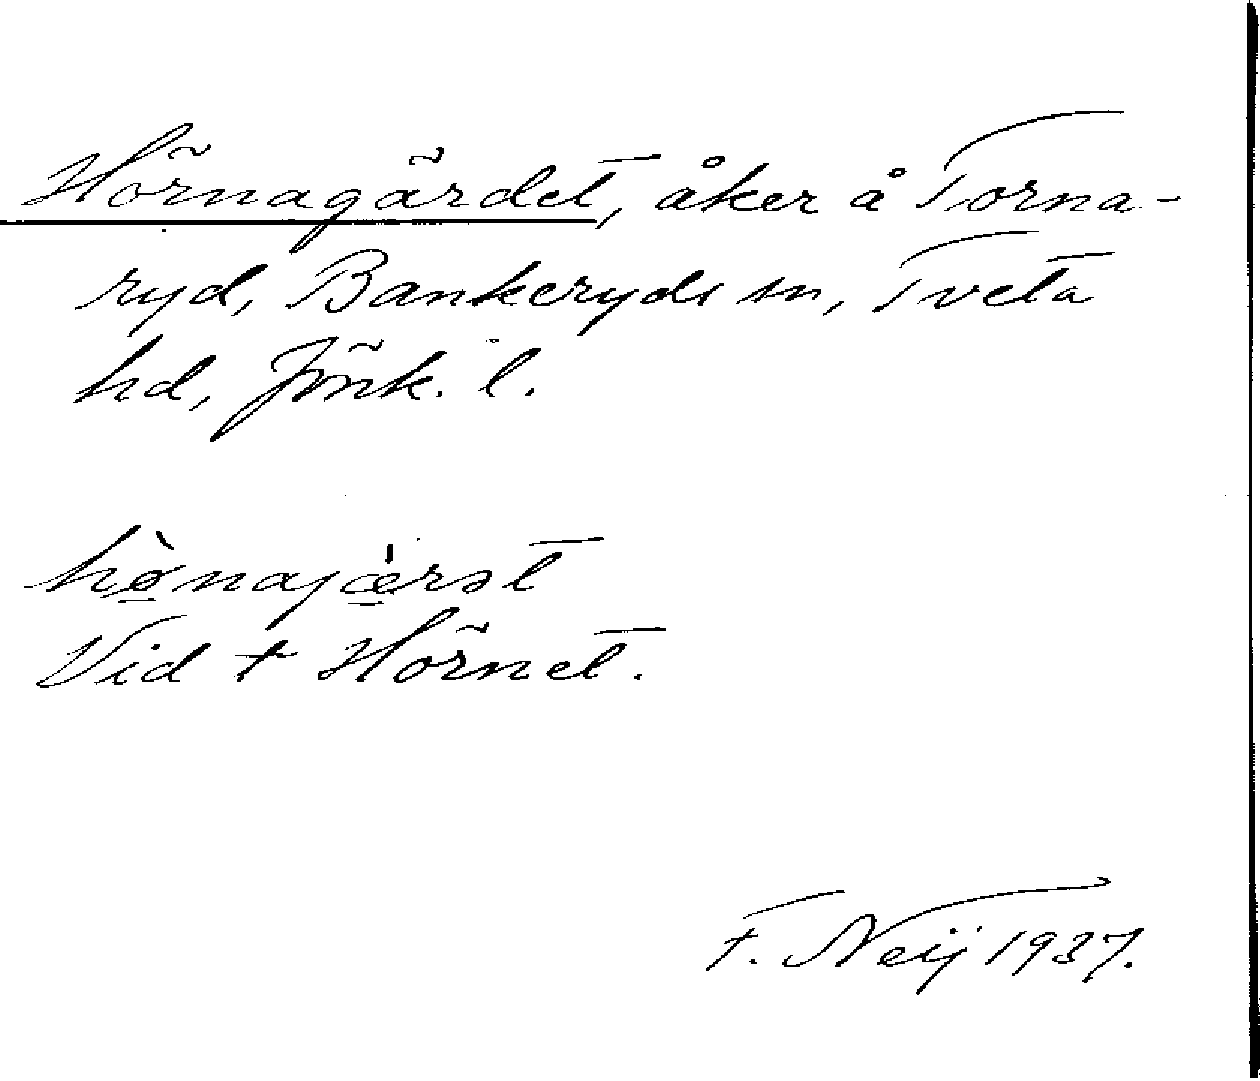 Hörnagärdet, åker å Torna-
ryd, Bankeryds sn, Tveta
hd, Jönk. l.
hø̀najæ̀rət
Vid † Hörnet.
F. Neij 1937.